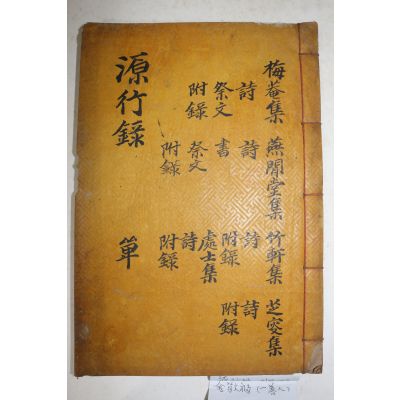 源行錄 單
梅菴集
詩
祭文
附錄
燕閒堂集
詩
書
祭文
附錄
竹軒集
詩
附錄
處士集
詩
附錄
芝窓集
詩
附錄